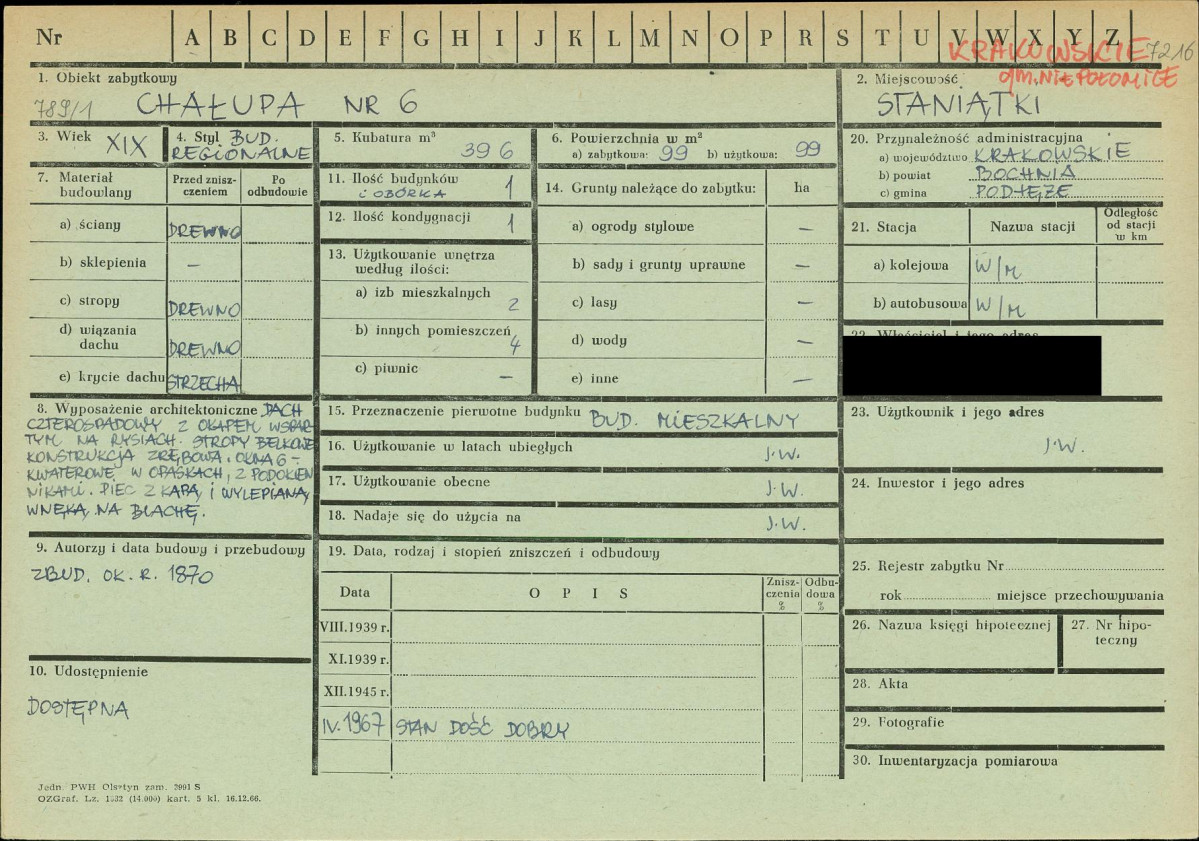 Nr A B C D E F G H I J K L M N O P R S T U V W X Y Z
KRAKOWSKIE 7216
gm. NIEPOŁOMICE
1. Obiekt zabytkowy
789/1 CHAŁUPA NR 6
2. Miejscowość
STANIĄTKI
3. Wiek XIX
4. Styl BUD.
REGIONALNE
5. Kubatura m³
396
6. Powierzchnia w m²
a) zabytkowa: 99 b) użytkowa: 99
20. Przynależność administracyjna
a) województwo KRAKOWSKIE
b) powiat BOCHNIA
c) gmina PODŁĘŻE
7. Materiał
budowlany
Przed znisz-
czeniem
Po
odbudowie
a) ściany DREWNO
b) sklepienia —
c) stropy DREWNO
d) wiązania
dachu DREWNO
e) krycie dachu STRZECHA
11. Ilość budynków
i OBÓRKA 1
12. Ilość kondygnacji 1
13. Użytkowanie wnętrza
według ilości:
a) izb mieszkalnych 2
b) innych pomieszczeń 4
c) piwnic —
14. Grunty należące do zabytku: ha
a) ogrody stylowe —
b) sady i grunty uprawne —
c) lasy —
d) wody —
e) inne —
21. Stacja Nazwa stacji
Odległość
od stacji
w km
a) kolejowa W/M
b) autobusowa W/M
22. Właściciel i jego adres
8. Wyposażenie architektoniczne DACH
CZTEROSPADOWY Z OKAPEM WSPAR-
TYM NA RYSIACH. STROPY BELKOWE
KONSTRUKCJA ZRĘBOWA. OKNA 6-
KWATEROWE W OPASKACH, Z PODOKIEN
NIKAMI. PIEC Z KAPĄ I WYLEPIANĄ
WNĘKĄ NA BLACHĘ.
15. Przeznaczenie pierwotne budynku BUD. MIESZKALNY
16. Użytkowanie w latach ubiegłych J.W.
17. Użytkowanie obecne J.W.
18. Nadaje się do użycia na J.W.
23. Użytkownik i jego adres
J.W.
24. Inwestor i jego adres
9. Autorzy i data budowy i przebudowy
ZBUD. OK. R. 1870
10. Udostępnienie
DOSTĘPNA
19. Data, rodzaj i stopień zniszczeń i odbudowy
Data OPIS
Znisz-
czenia
%
Odbu-
dowa
%
VIII.1939 r.
XI.1939 r.
XII.1945 r.
IV.1967 STAN DOŚĆ DOBRY
25. Rejestr zabytku Nr
rok miejsce przechowywania
26. Nazwa księgi hipotecznej
27. Nr hipo-
teczny
28. Akta
29. Fotografie
30. Inwentaryzacja pomiarowa
Jedn. PWH Olsztyn zam. 2991 S
OZGraf. Lz. 1332 (14.000) kart. 5 kl. 16.12.66.